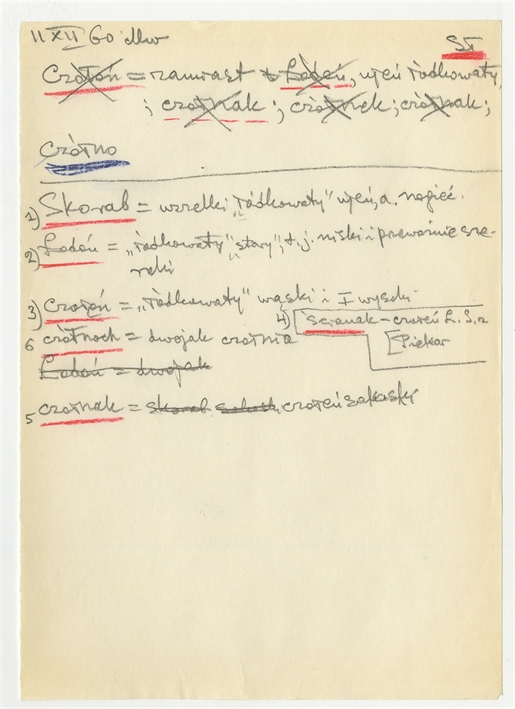 11 XII 60 dłw
SŁ
Czółón = zamiast Ledeń, ujeń ìódkowaty,
; czółnak ; czółnek ; czółnak ;
Czółno
1) Skorab = wszelki „ìódkowaty" ujeń, a. nogieć.
2) Lodoń = „ìódkowaty" „stary", t.j. niski i przeważnie sze-
roki
3) Czołen = „ìódkowaty" wąski i wysoki
4) Scianak - czoleń Ł. S. z
Piekar
6 czółnoch = dwojak czółna
Lodoń = dwojak
5 czółnak = skorab czołeń